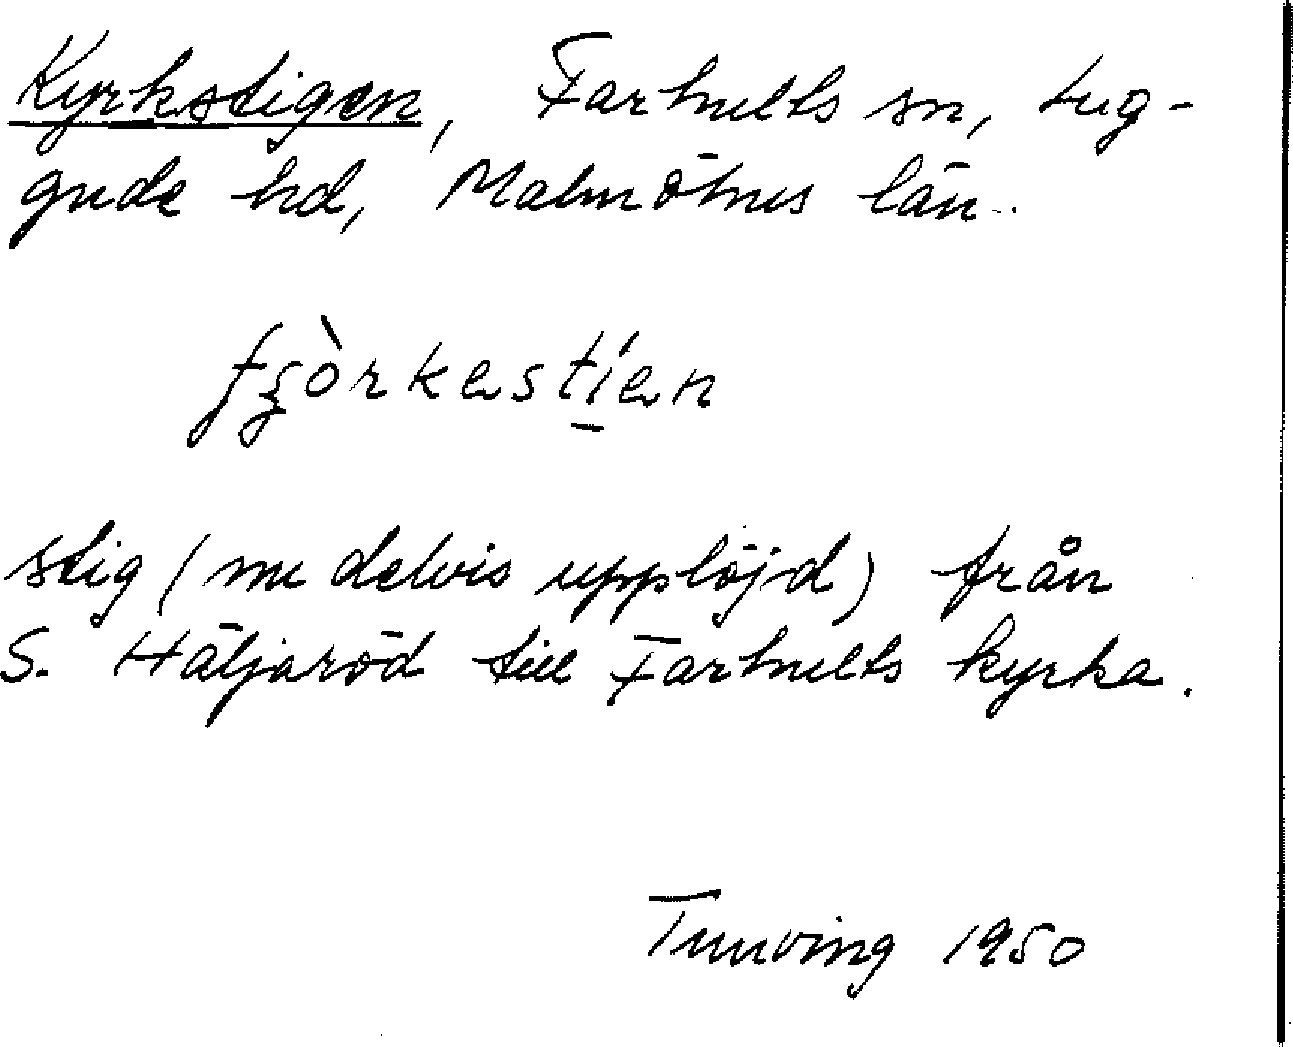 Kyrkstigen, Farhults sn, Lug-
gude hd, Malmöhus län.
stig (nu delvis upplöjd) från
S. Häljaröd till Farhults kyrka.
Tunving 1950